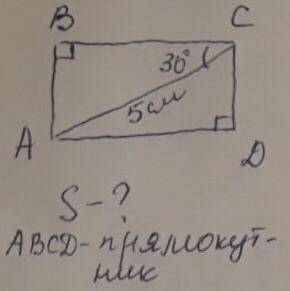 B C
30°
5см
A D
S-?
ABCD-прямокут-
ник